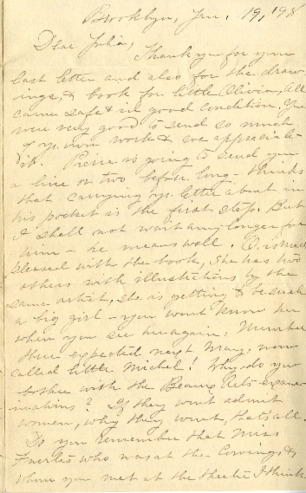 Brooklyn, Jan. 19, 198
Dear Julia,
Thank you for your
last letter and also for the draw-
ings, & book for little Olivia, All
came safe & in good condition. You
were very good to send so much
of yr. own work & we appreciate
it. Pierre is going to send you
a line or two before long, thinks
that carrying yr. letter about in
his pocket is the first step. But
I shall not wait any longer for
him - he means well. O. is much
pleased with the book, She has two
others with illustrations by the
same artist, she is getting to be such
a big girl - you wont know her
when you see her again. Number
three expected next May, now
called little Michel! Why do you
bother with the Beaux Arts
? If they wont admit
women, why they wont, thats all.
Do you remember that Miss
Fuertes who was at the Cowings, &
whom you met at the theatre I think